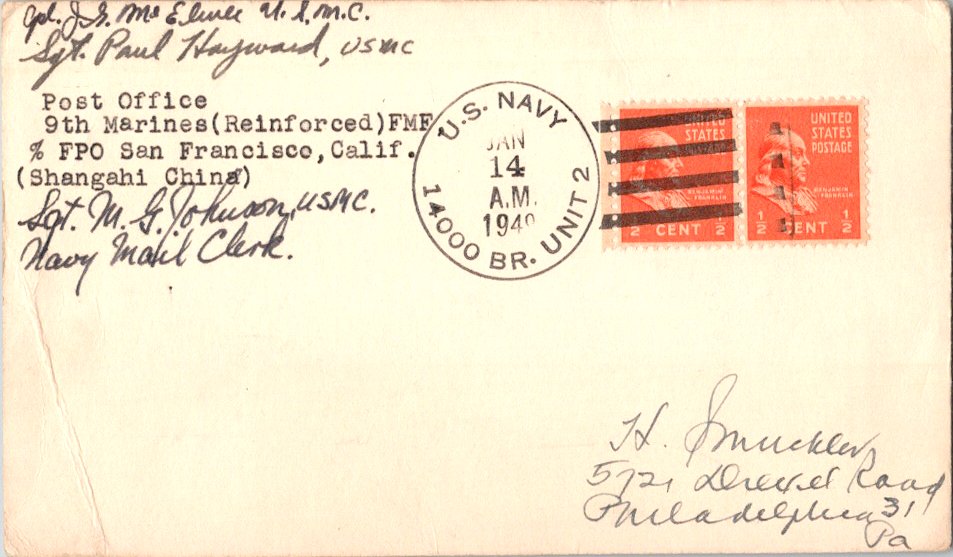 Cpl. J. G. Mc Elwee U.S.M.C.
Sgt. Paul Hayward, USMC
Post Office
9th Marines(Reinforced)FMF
% FPO San Francisco, Calif.
(Shangahi China)
Sgt. M. G. Johnson, USMC.
Navy Mail Clerk.
U.S. NAVY
JAN
14
A.M.
1949
14000 BR. UNIT 2
UNITED
STATES
BENJAMIN
FRANKLIN
1/2 CENT 1/2
UNITED
STATES
POSTAGE
BENJAMIN
FRANKLIN
1/2 CENT 1/2
H. Smuckler
5721 Drexel Road
Philadelphia 31
Pa